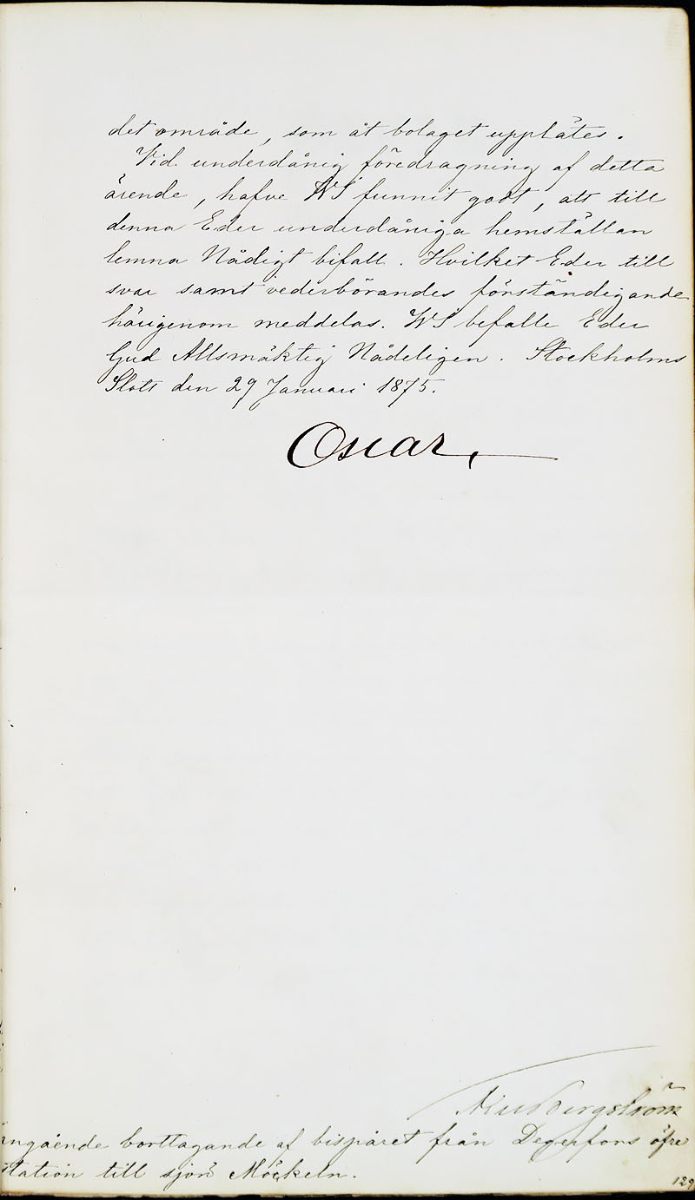 det område, som åt bolaget upplåtes.
Vid underdånig föredragning af detta
ärende, hafve WI funnit godt, att till
denna Eder underdåniga hemställan
lemna Nådigt bifall. Hvilket Eder till
svar samt vederbörandes förständigande
härigenom meddelas. WI befalle Eder
Gud Allsmäktig Nådeligen. Stockholms
Slott den 29 Januari 1875.
Oscar
Bergström
ångående borttagande af bispåret från Degerfors öfre
station till sjön Möckeln.
129